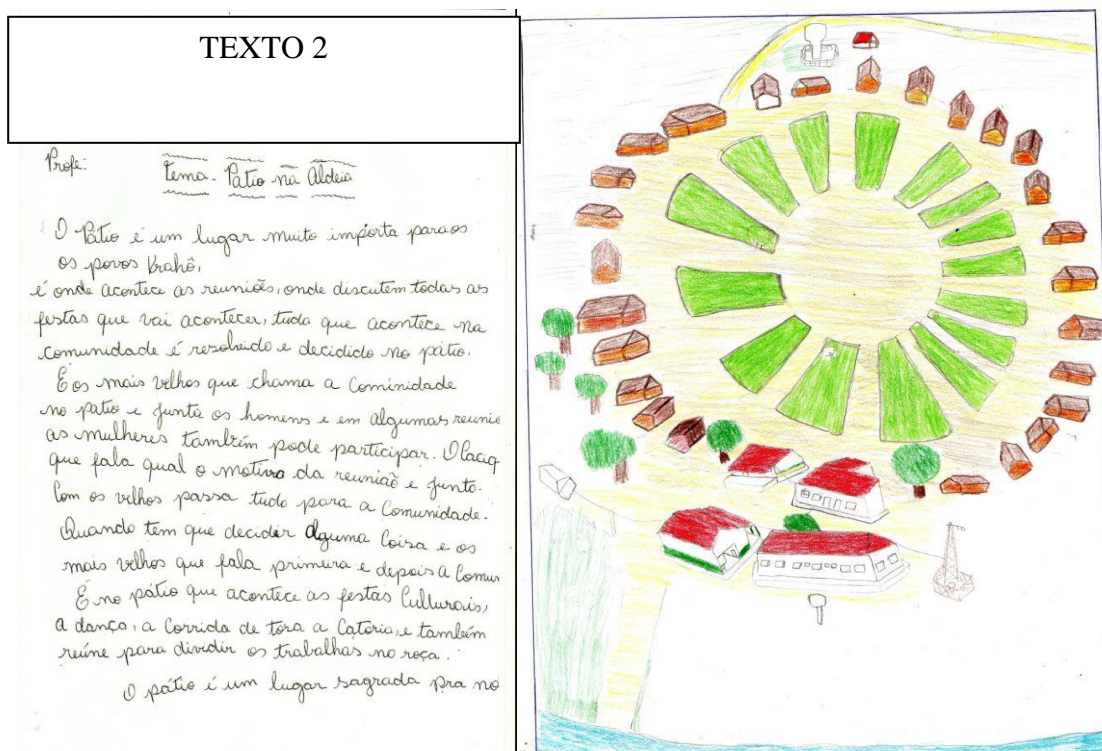 TEXTO 2
Profe:
Tema - Pátio na Aldeia
O Pátio é um lugar muito importa para os
os povos Krahô,
é onde acontece as reuniões, onde discutem todas as
festas que vai acontecer, tudo que acontece na
comunidade é resolvido e decidido no pátio.
E os mais velhos que chama a Cominidade
no patio e junta os homens e em algumas reunie
as mulheres também pode participar. O Caciq
que fala qual o motivo da reunião e junto.
Com os velhos passa tudo para a Comunidade.
Quando tem que decider alguma Coisa e os
mais velhos que fala primeira e depois a Comun
É no pátio que acontece as festas Culturais,
a dança, a Corrida de tora a Catoria, e também
reúne para dividir os trabalhas no roça.
O pátio é um lugar sagrada pra nó